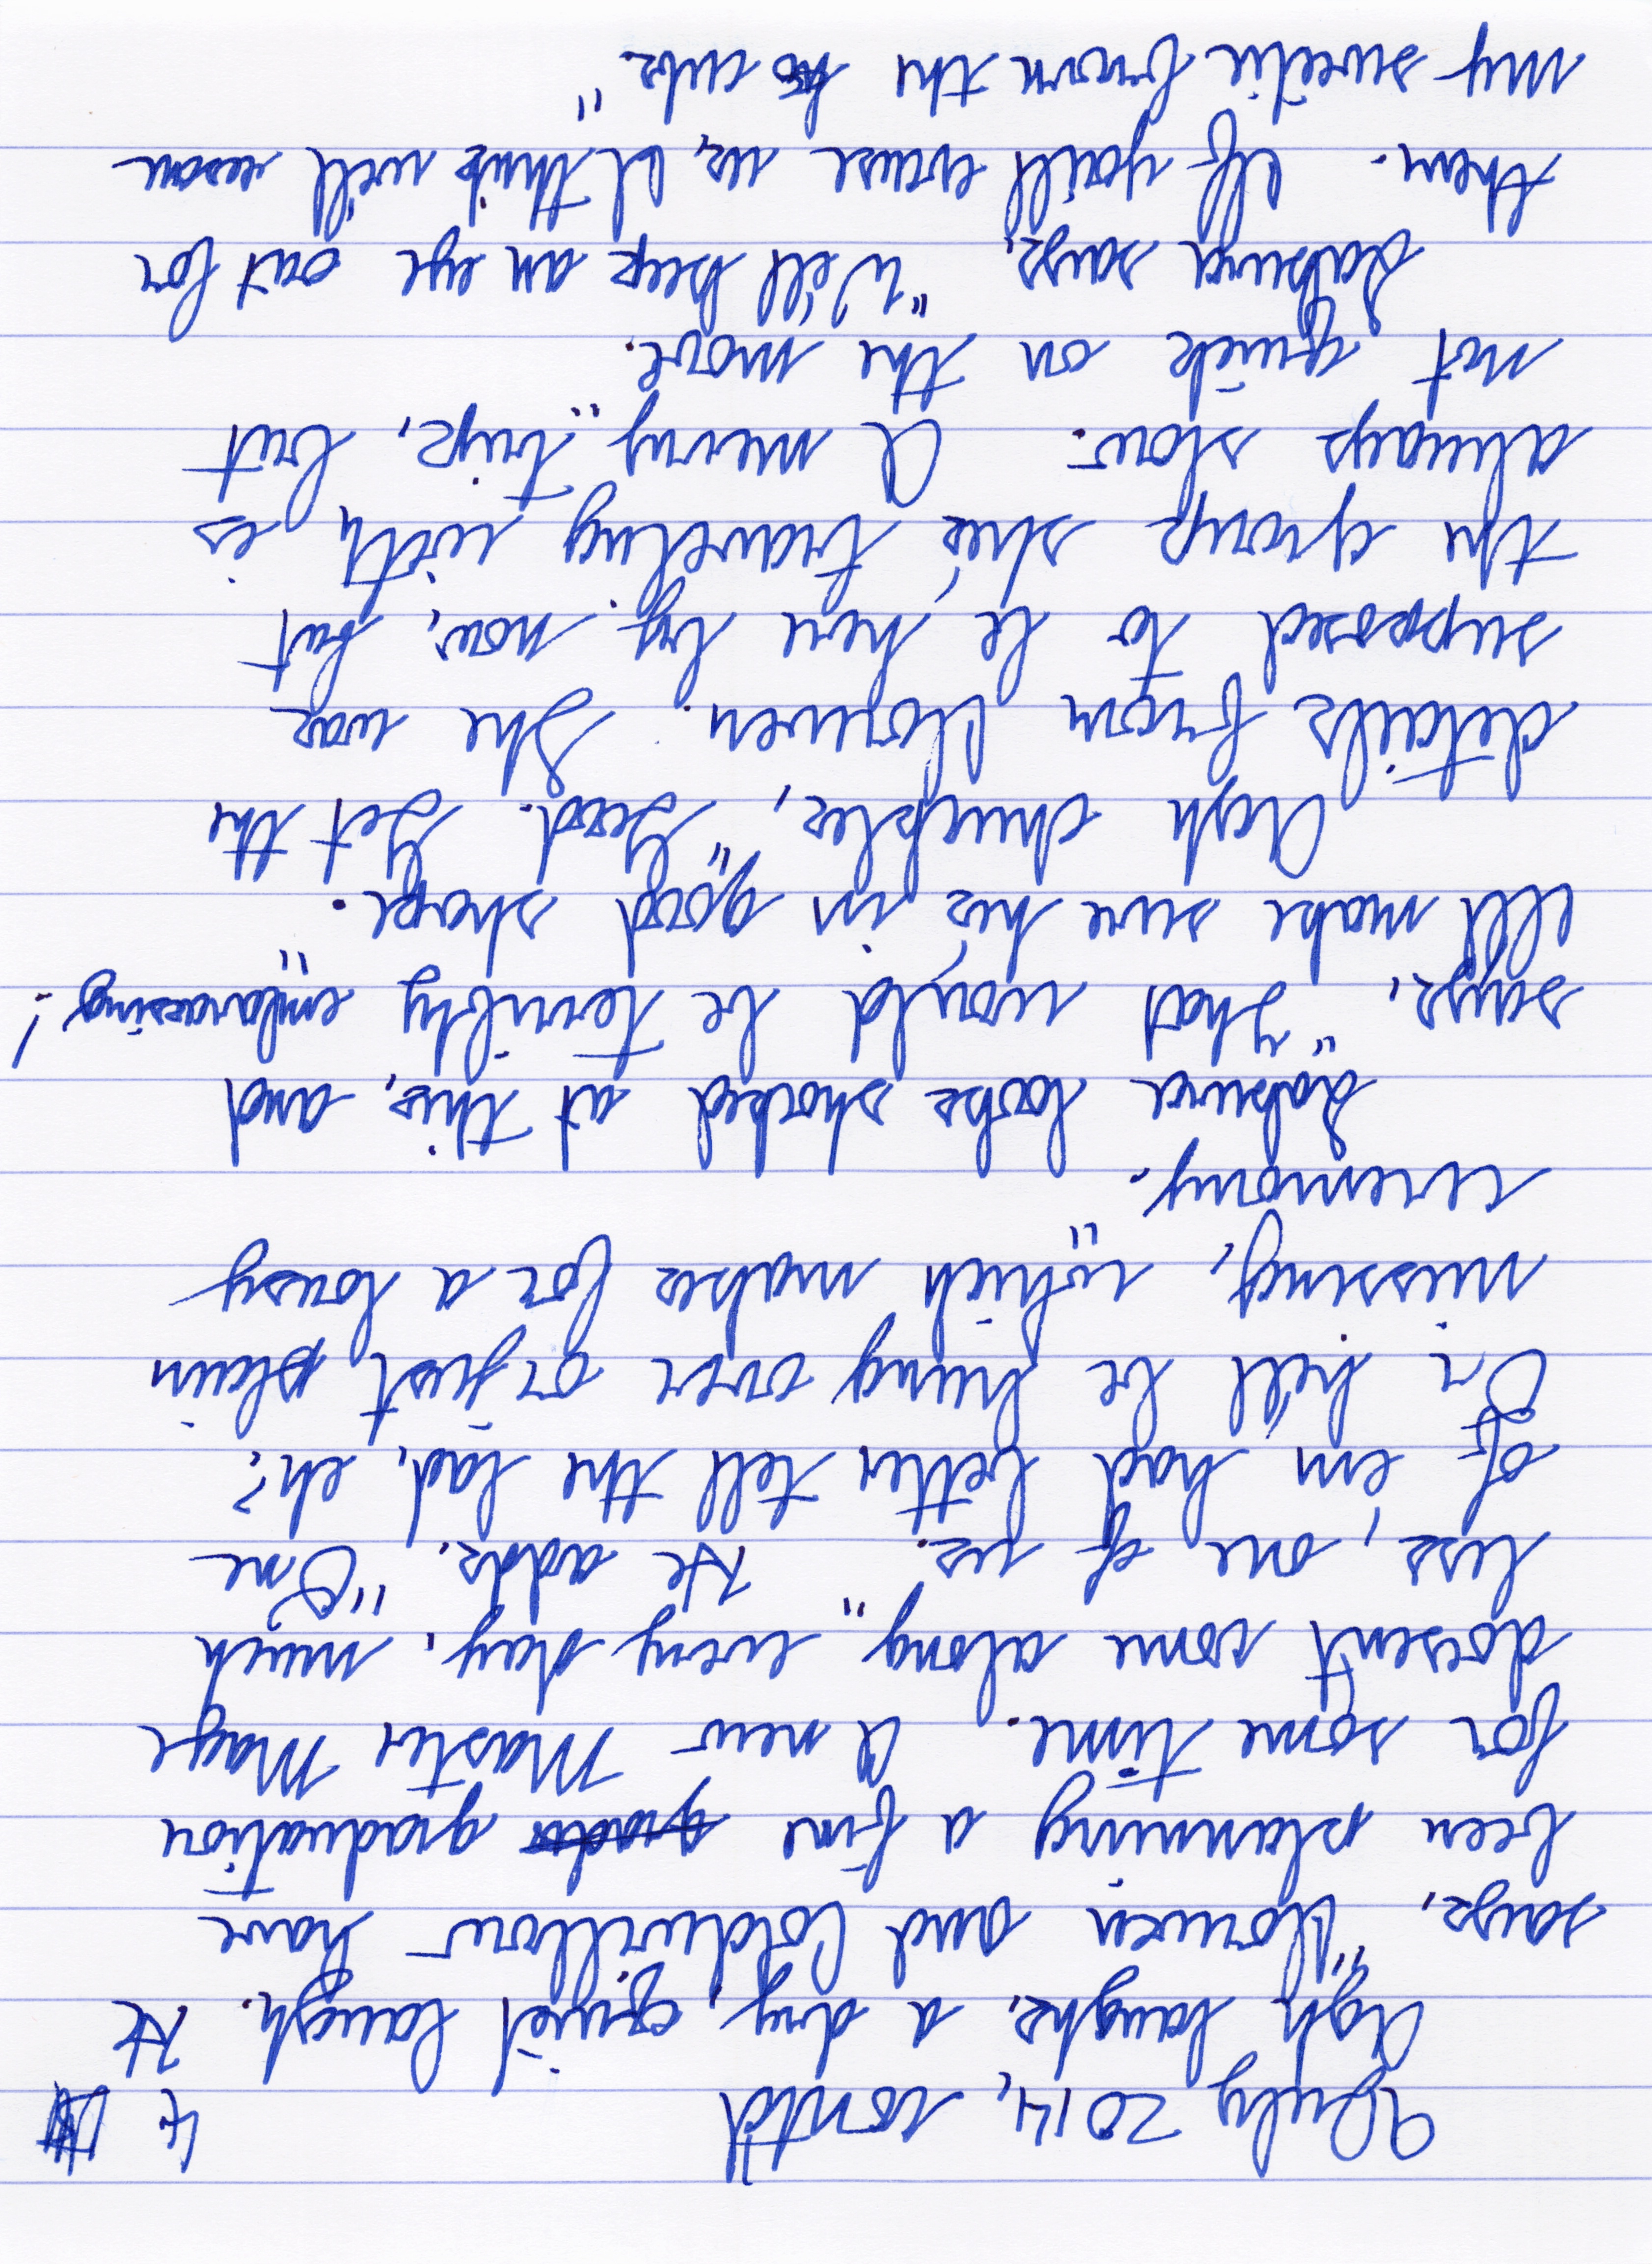 9 July 2014, cont'd 4
Ash laughs, a dry, quiet laugh. He
says, "Norwen and Coldwillow have
been planning a fine graduation
for some time. A new Master Mage
doesn't come along every day, much
less, one of us." He adds, "One
of 'em had better tell the lad, eh?
Or he'll be hung over or just plain
missing, which makes for a lousy
ceremony."
Sakura looks shocked at this, and
says, "That would be terribly embarassing!
I'll make sure he's in good shape."
Ash chuckles, "Good. Get the
details from Norwen. She was
supposed to be here by now, but
the group she's traveling with is
always slow. A merry trip, but
not quick on the move."
Sakura says, "We'll keep an eye out for
them. If you'll excuse us, I think we'll rescue
my sweetie from the cubs."